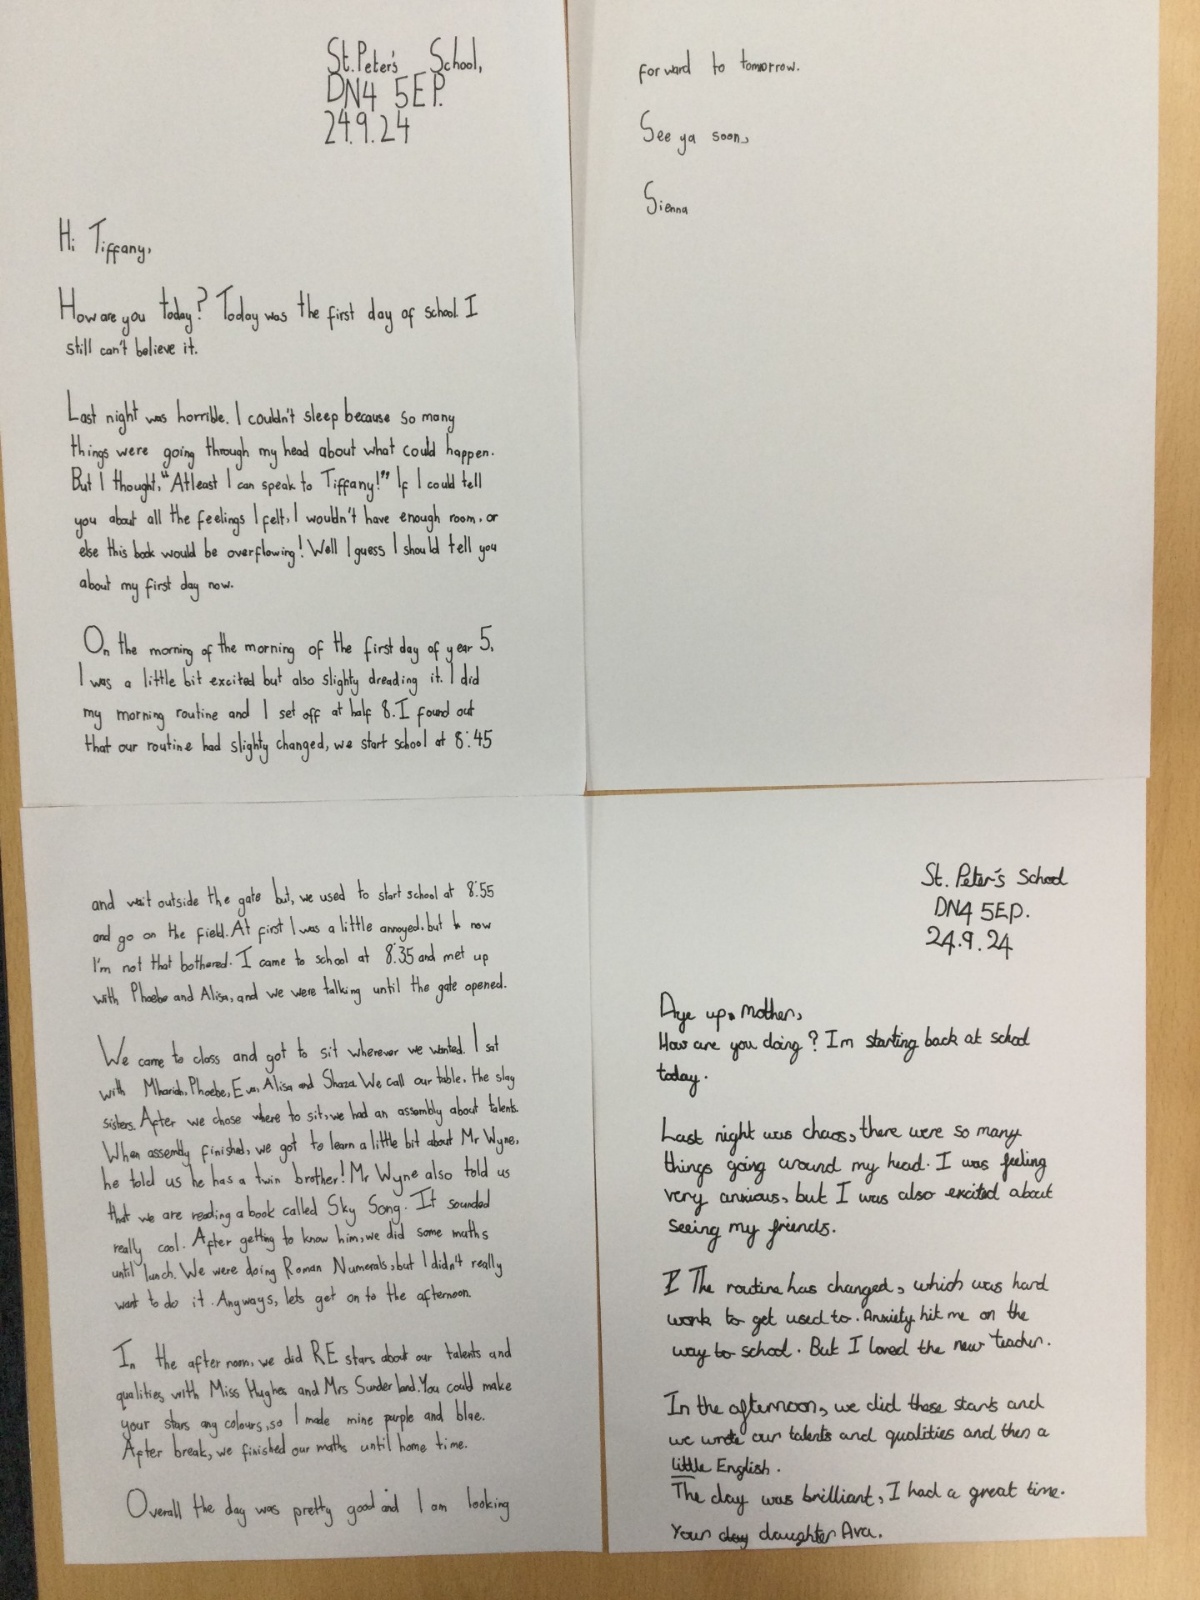 St. Peter's School,
DN4 5EP.
24.9.24
Hi Tiffany,
How are you today? Today was the first day of school. I
still can't believe it.
Last night was horrible. I couldn't sleep because so many
things were going through my head about what could happen.
But I thought, "Atleast I can speak to Tiffany!" If I could tell
you about all the feelings I felt, I wouldn't have enough room, or
else this book would be overflowing! Well I guess I should tell you
about my first day now.
On the morning of the morning of the first day of year 5,
I was a little bit excited but also slighty dreading it. I did
my morning routine and I set off at half 8. I found out
that our routine had slighty changed, we start school at 8:45
and wait outside the gate but, we used to start school at 8:55
and go on the field. At first I was a little annoyed, but now
I'm not that bothered. I came to school at 8:35 and met up
with Phoebe and Alisa, and we were talking until the gate opened.
We came to class and got to sit wherever we wanted. I sat
with Mhariah, Phoebe, Eva, Alisa and Shaza. We call our table, the slay
sisters. After we chose where to sit, we had an assembly about talents.
When assembly finished, we got to learn a little bit about Mr Wyne,
he told us he has a twin brother! Mr Wyne also told us
that we are reading a book called Sky Song. It sounded
really cool. After getting to know him, we did some maths
until lunch. We were doing Roman Numerals, but I didn't really
want to do it. Anyways, lets get on to the afternoon.
In the after noon, we did RE stars about our talents and
qualities, with Miss Hughes and Mrs Sunderland. You could make
your stars any colours, so I made mine purple and blue.
After break, we finished our maths until home time.
Overall the day was pretty good and I am looking
forward to tomorrow.
See ya soon,
Sienna
St. Peter's School
DN4 5EP.
24.9.24
Aye up, Mother,
How are you doing? I'm starting back at school
today.
Last night was chaos, there were so many
things going around my head. I was feeling
very anxious, but I was also excited about
seeing my friends.
I The routine has changed, which was hard
work to get used to. Anxiety hit me on the
way to school. But I loved the new teacher.
In the afternoon, we did these stars and
we wrote our talents and qualities and then a
little English.
The day was brilliant, I had a great time.
Your day daughter Ava.